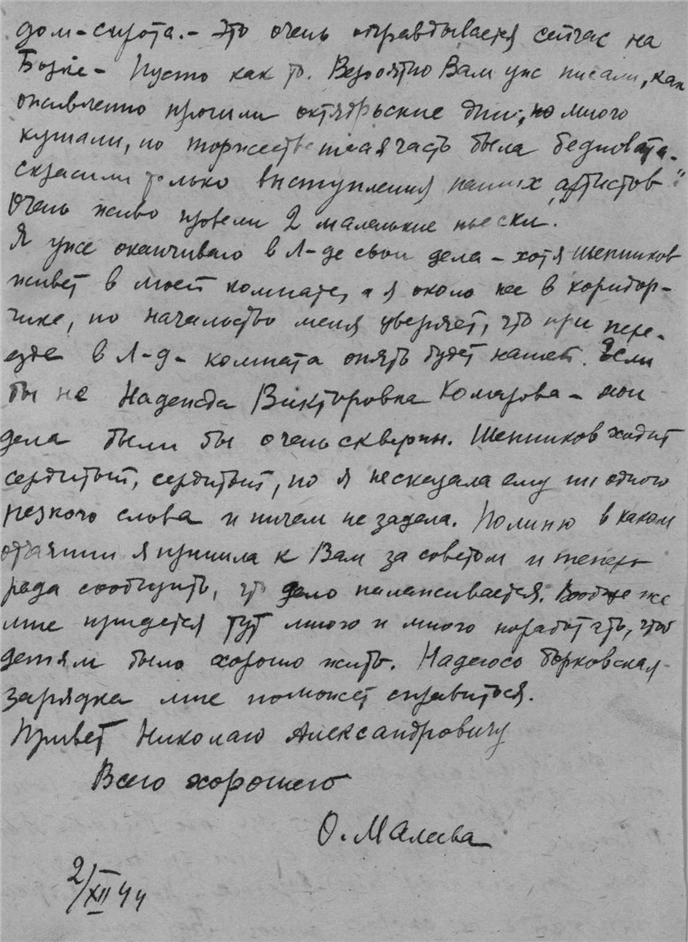 дом-сирота. - Это очень оправдывается сейчас на
- Пусто как то. Вероятно Вам уже писали, как
оживленно прошли октябрьские дни, но много
кушали, но торжественная часть была бедновата.
скрасили только выступления наших „артистов".
Очень живо провели 2 маленькие пьески.
Я уже оканчиваю в Л-де свои дела - хотя Шепшиков
живет в моей комнате, а я около нее в коридор-
чике, но начальство меня уверяет, что при пере-
езде в Л-д - комната опять будет нашей. Если
бы не Надежда Викторовна Комарова - мои
дела были бы очень скверны. Шепшиков ходит
сердитый, сердитый, но я не сказала ему ни одного
резкого слова и ничем не задела. Помню в каком
отчаянии я пришла к Вам за советом и теперь
рада сообщить, что дело налаживается. Вообще же
мне придется тут много и много поработать, чтоб
детям было хорошо жить. Надеюсь борковская
зарядка мне поможет справиться.
Привет Николаю Александровичу
Всего хорошего
О. Малева
2/XII 44